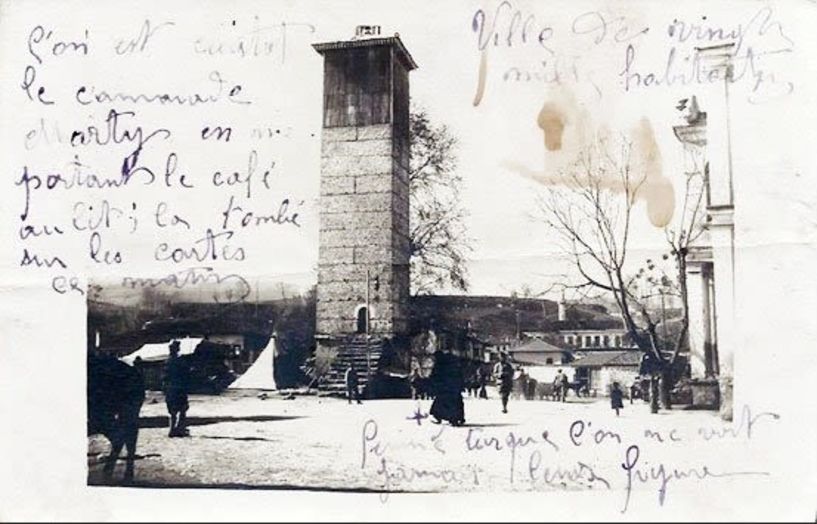 l'on est
le camarade
Marty en me
portant le café
au lit ; la tombé
sur les cartes
ce matin
Ville de vingt
mille habitants
+
femme turque l'on ne voit
jamais leurs figure